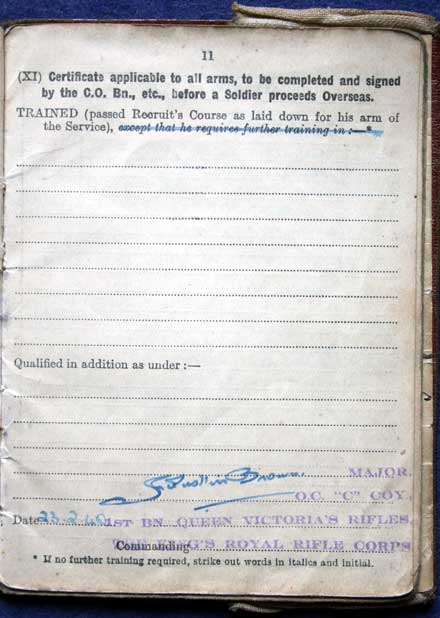 11
(XI) Certificate applicable to all arms, to be completed and signed
by the C.O. Bn., etc., before a Soldier proceeds Overseas.
TRAINED (passed Recruit's Course as laid down for his arm of
the Service), except that he requires further training in :—*
Qualified in addition as under :—
Brown. MAJOR.
O.C. "C" COY.
Date 1ST BN. QUEEN VICTORIA'S RIFLES.
Commanding THE KING'S ROYAL RIFLE CORPS
* If no further training required, strike out words in italics and initial.